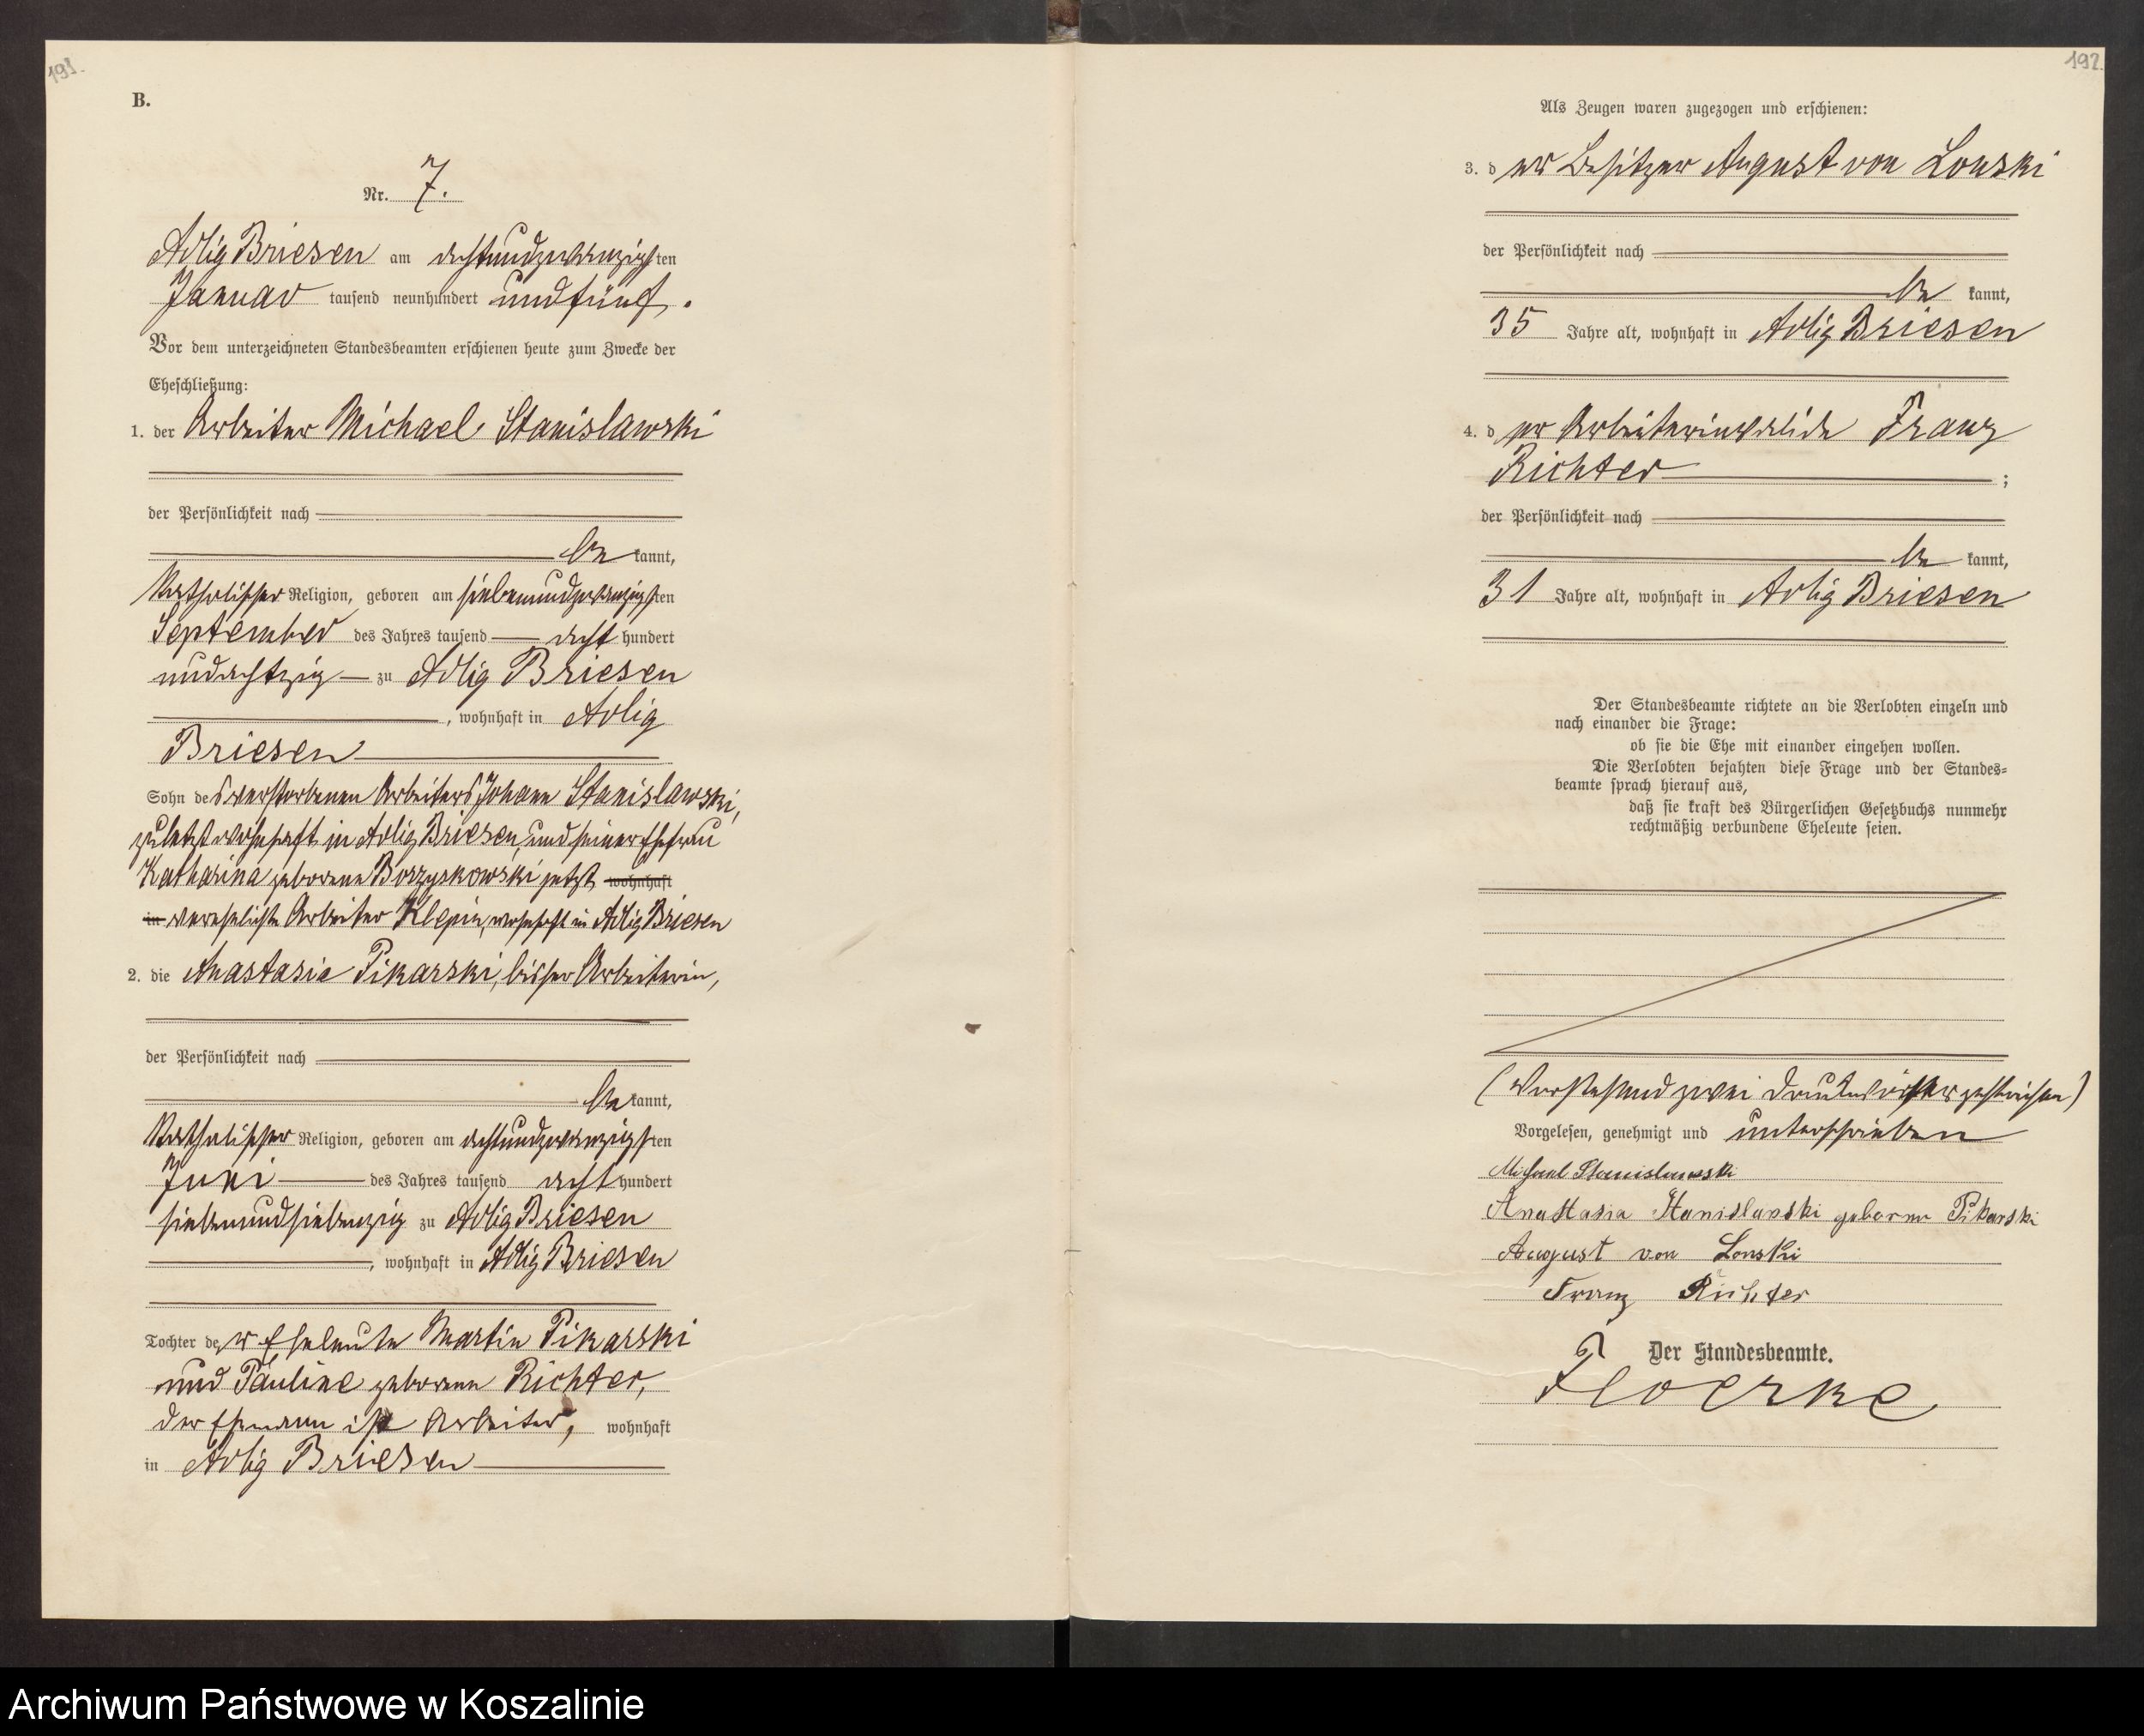 191.
B.
Nr. 7.
Adlig Briesen am achtundzwanzigsten
Januar tausend neunhundert und fünf.
Vor dem unterzeichneten Standesbeamten erschienen heute zum Zwecke der
Eheschließung:
1. der Arbeiter Michael Stanislawski
der Persönlichkeit nach
be kannt,
katholischer Religion, geboren am siebenundzwanzigsten
September des Jahres tausend acht hundert
undachtzig zu Adlig Briesen
, wohnhaft in Adlig
Briesen
Sohn des verstorbenen Arbeiters Johann Stanislawski,
zuletzt wohnhaft in Adlig Briesen, und seiner Ehefrau
Katharina geborene Borzyskowski jetzt wohnhaft
in verehelichte Arbeiter Klepin, wohnhaft in Adlig Briesen
2. die Anastasia Pikarski, bisher Arbeiterin,
der Persönlichkeit nach
be kannt,
katholischer Religion, geboren am achtundzwanzigsten
Juni des Jahres tausend acht hundert
siebenundsiebenzig zu Adlig Briesen
, wohnhaft in Adlig Briesen
Tochter der Eheleute Martin Pikarski
und Pauline geborene Richter,
der Ehemann ist Arbeiter, wohnhaft
in Adlig Briesen
192.
Als Zeugen waren zugezogen und erschienen:
3. der Besitzer August von Lonski
der Persönlichkeit nach
be kannt,
35 Jahre alt, wohnhaft in Adlig Briesen
4. der Arbeiterinvalide Franz
Richter ;
der Persönlichkeit nach
be kannt,
31 Jahre alt, wohnhaft in Adlig Briesen
Der Standesbeamte richtete an die Verlobten einzeln und
nach einander die Frage:
ob sie die Ehe mit einander eingehen wollen.
Die Verlobten bejahten diese Frage und der Standes=
beamte sprach hierauf aus,
daß sie kraft des Bürgerlichen Gesetzbuchs nunmehr
rechtmäßig verbundene Eheleute seien.
(Vorstehend zwei Druckwörter gestrichen)
Vorgelesen, genehmigt und unterschrieben
Michael Stanislawski
Anastasia Stanislawski geborene Pikarski
August von Lonski
Franz Richter
Der Standesbeamte.
Floerke
Archiwum Państwowe w Koszalinie